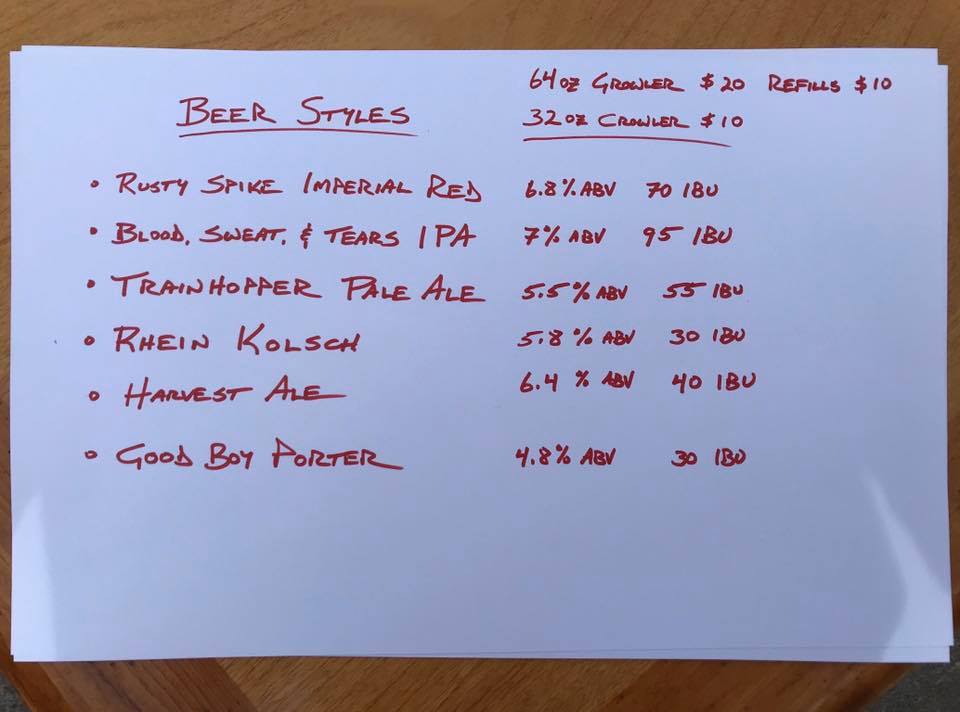 64oz Growler $20 Refills $10
Beer Styles
32oz Crowler $10
• Rusty Spike Imperial Red 6.8% ABV 70 IBU
• Blood, Sweat, & Tears IPA 7% ABV 95 IBU
• Trainhopper Pale Ale 5.5% ABV 55 IBU
• Rhein Kolsch 5.8% ABV 30 IBU
• Harvest Ale 6.4 % ABV 40 IBU
• Good Boy Porter 4.8% ABV 30 IBU